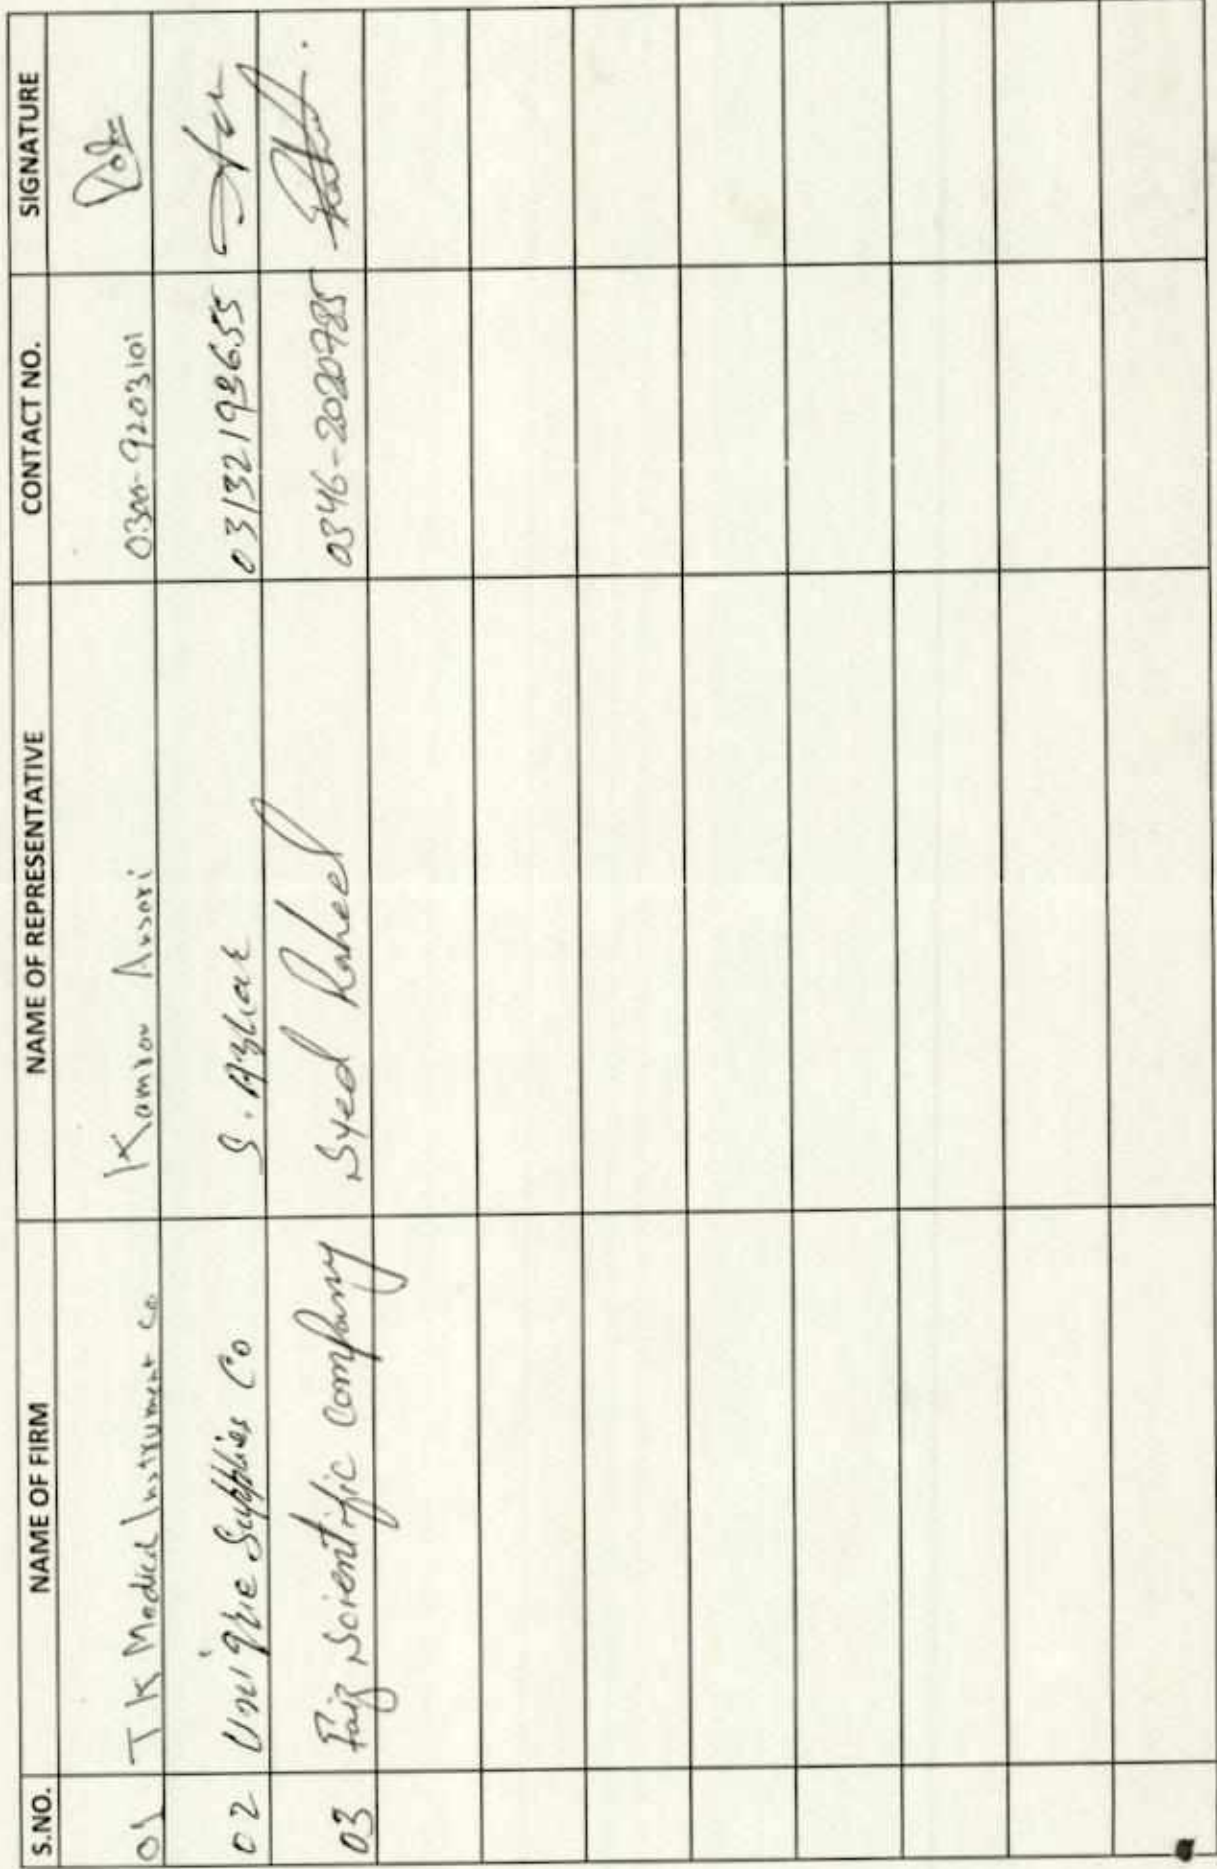 S.NO. NAME OF FIRM NAME OF REPRESENTATIVE CONTACT NO. SIGNATURE
01 TK Medical Instrument Co Kamran Ansari 0300-9203101
02 Unique Supplies Co S. Azhar 03132193655
03 Faiz Scientific Company Syed Raheel 0346-2020985